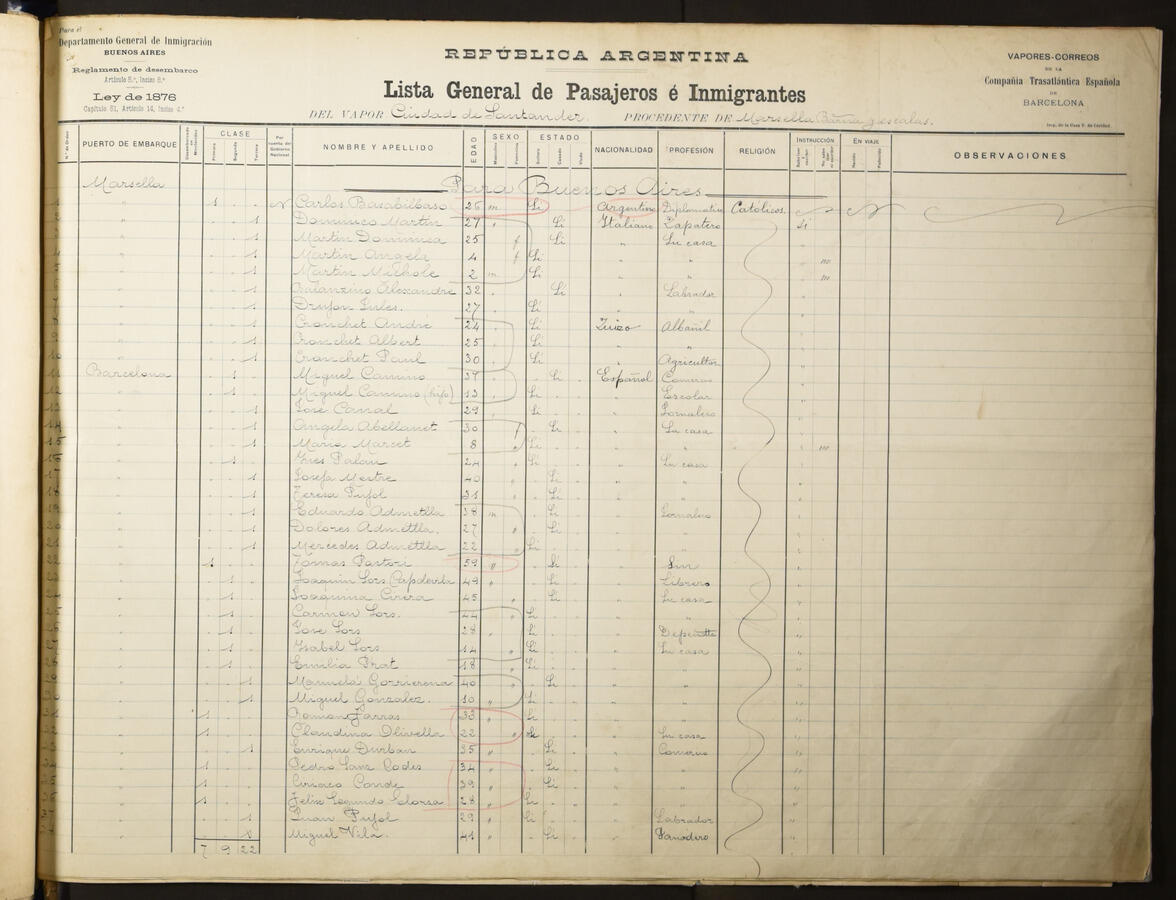 Para el
Departamento General de Inmigración
BUENOS AIRES
Reglamento de desembarco
Artículo 8.º, Inciso 8.º
Ley de 1876
Capítulo 81, Artículo 14, Inciso 4.º
REPÚBLICA ARGENTINA
Lista General de Pasajeros é Inmigrantes
DEL VAPOR Ciudad de Santander. PROCEDENTE DE Marsella Barna y escalas.
VAPORES-CORREOS
DE LA
Compañia Trasatlántica Española
DE
BARCELONA
N.º de Orden PUERTO DE EMBARQUE CLASE Primera Segunda Tercera NOMBRE Y APELLIDO EDAD SEXO Masculino Femenino ESTADO Soltero Casado Viudo NACIONALIDAD PROFESIÓN RELIGIÓN INSTRUCCIÓN EN VIAJE OBSERVACIONES
Marsella Para Buenos Aires
1 " 1 Carlos Basabilbaso 26 m Si Argentino Diplomatico Católicos
2 " 1 Domingo Martin 27 " Si Italiano Zapatero Si
" 1 Martin Dominica 25 f Si " Su casa "
4 " 1 Martin Angela 4 f Si " " no
5 " 1 Martin Michele 2 m Si " " no
6 " 1 Alexandre 32 " Si " Labrador "
7 " 1 Drujon Jules. 27 " Si " " "
8 " 1 Cronchet André 24 " Si Suizo Albañil "
9 " 1 Cronchet Albert 25 " Si " " "
10 " 1 Cronchet Paul 30 " Si " Agricultor "
11 Barcelona 1 Miguel Camino 37 " Si Español Comercio "
12 " 1 Miguel Camino (hijo) 13 " Si " Escolar "
13 " 1 José Canal 29 " Si " Jornalero "
14 " 1 Angela Abellanet 30 f Si " Su casa "
15 " 1 Maria Marcet 8 " Si " " no
16 " 1 Ines Palau 24 " Si " Su casa "
17 " 1 Josefa Mestre 40 " Si " " "
18 " 1 Teresa Pujol 31 " Si " " "
19 " 1 Eduardo Admetlla 38 m Si " Jornalero "
20 " 1 Dolores Admetlla. 27 " Si " " "
21 " 1 Mercedes Admetlla 22 " Si " " "
22 " 1 Tomas Pastori 59 " Si " Sin "
23 " 1 Joaquin Sors Capdevila 49 " Si " Librero "
24 " 1 Joaquina Civera 45 " Si " Su casa "
25 " 1 Carmen Sors. 44 " Si " " "
26 " 1 José Sors 28 " Si " "
27 " 1 Isabel Sors 14 " Si " Su casa "
28 " 1 Emilia Prat 18 " Si " " "
29 " 1 Manuela 40 " Si " " "
30 " 1 Miguel Gonzalez. 10 " Si " " "
31 " 1 Ramon Farras 33 " Si " " "
32 " 1 Claudina Olivella 22 " " Su casa "
33 " 1 Enrique Durban 35 " Si " Comercio "
34 " 1 Pedro Sanz Codes 34 " Si " " "
35 " 1 Ciriaco Conde 39 " Si " " "
36 " 1 Felix Segundo 28 " Si " " "
37 " 1 Juan Pujol 29 " Si " Labrador "
" Miguel Vila. 41 " Si " Panadero "
7 9 22